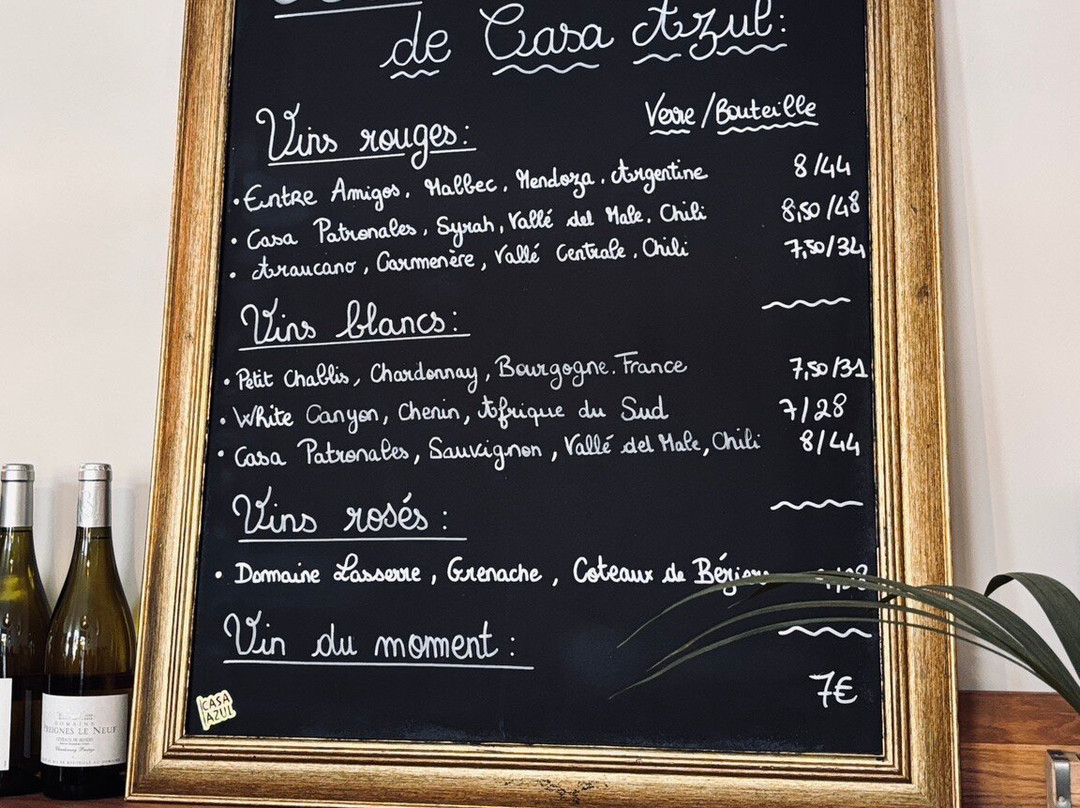 de Casa Azul:
Verre/Bouteille
Vins rouges:
• Entre Amigos, Malbec, Mendoza, Argentine 8/44
• Casa Patronales, Syrah, Vallé del Male, Chili 8,50/48
• Araucano, Carmenère, Vallé Centrale, Chili 7,50/34
Vins blancs:
• Petit Chablis, Chardonnay, Bourgogne. France 7,50/31
• White Canyon, Chenin, Afrique du Sud 7/28
• Casa Patronales, Sauvignon, Vallé del Male, Chili 8/44
Vins rosés:
• Dommaine Lasserre, Grenache, Coteaux de Béziers
Vin du moment:
7€
CASA
AZUL
DOMAINE
PREIGNES LE NEUF